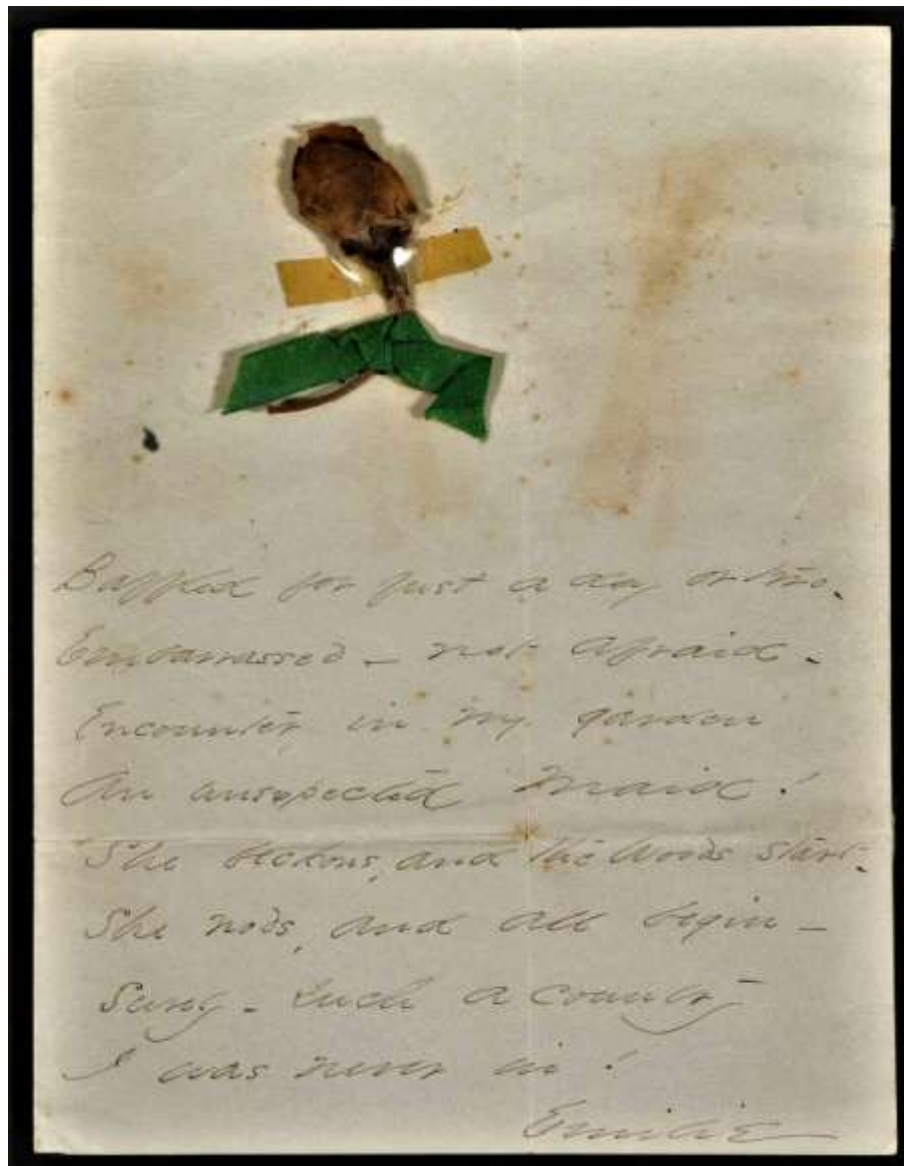 Baffled for just a day or two -
Embarrassed - not afraid -
Encounter in my garden
An unexpected Maid!
She beckons, and the Woods start -
She nods, and all begin -
Surely - Such a country
I was never in!
Emilie